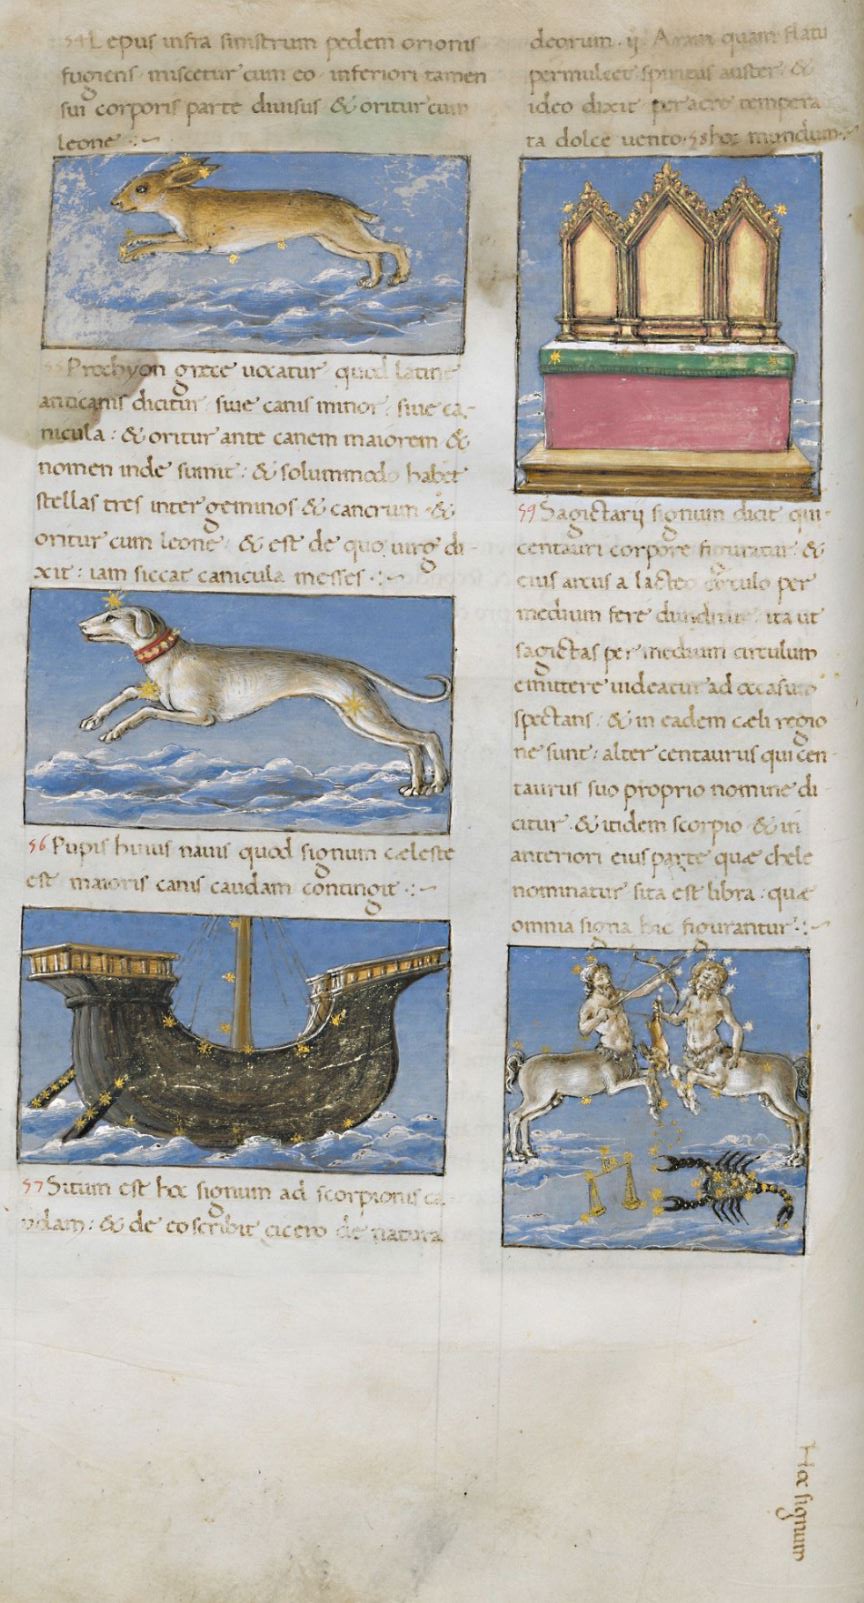 54 Lepus infra sinistrum pedem orionis
fugiens miscetur cum eo inferiori tamen
sui corporis parte diuisus & oritur cum
leone :~
55 Prochyon grece uocatur quod latine
anticanis dicitur siue canis minor siue ca-
nicula : & oritur ante canem maiorem &
nomen inde sumit : & solummodo habet
stellas tres inter geminos & cancrum &
oritur cum leone & est de quo uirg di-
xit : iam siccat canicula messes :~
56 Pupis huius nauis quod signum cæleste
est maioris canis caudam contingit :~
57 Situm est hoc signum ad scorpionis ca
udam : & de eo scribit cicero de natura
deorum ij Aram quam flatu
permulcet spiritus auster &
ideo dixit per aere tempera
ta dolce uento 58 hoc mundum
59 Sagictarij signum dicit qui
centauri corpore figuratur &
eius arcus a lacteo circulo per
medium fere diuiditur ita ut
sagictas per medium circulum
emittere uideatur ad occasum
spectans : & in eadem cæli regio
ne sunt : alter centaurus qui cen
taurus suo proprio nomine di
citur & itidem scorpio & in
anteriori eius parte quæ chele
nominatur sita est libra quæ
omnia signa hic figurantur :~
Hoc signum